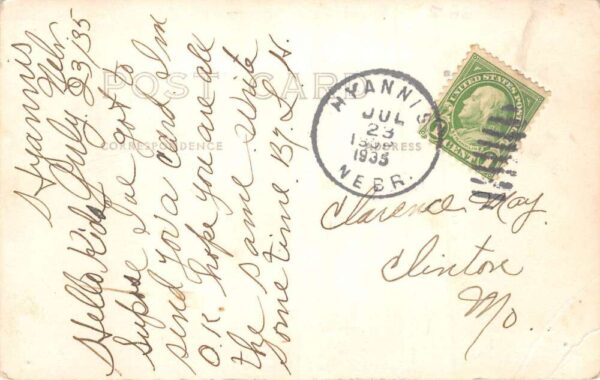 POST CARD
CORRESPONDENCE
ADDRESS
Hyannis
Nebr
July 23/35
Hello Kids
Supose I've got to
send you a card I'm
O.K. hope you are all
the same. Write
some time. By L.H.
HYANNIS
JUL
23
1935
NEBR.
UNITED STATES POSTAGE
CENT
Clarence May
Clinton
Mo.